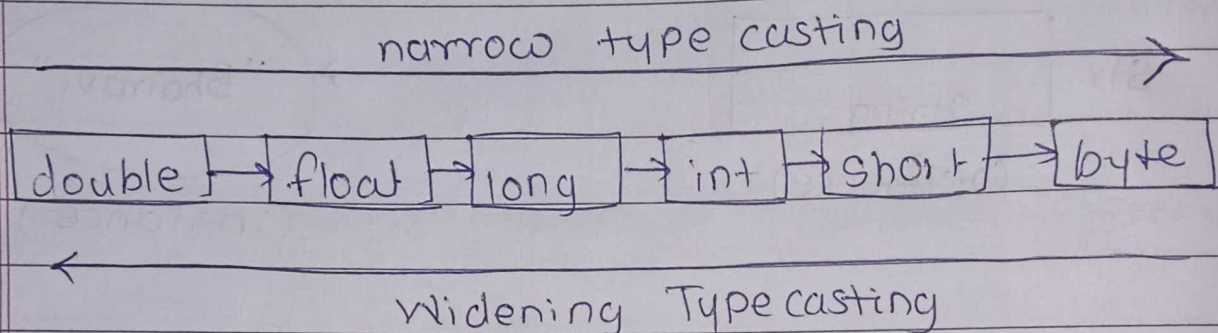 narrow type casting
double float long int short byte
Widening Type casting